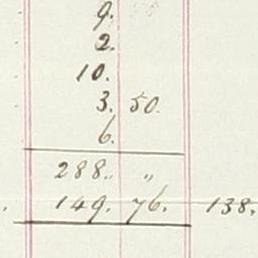 9.
2.
10.
3. 50.
6.
288.. "
149. 76. 138.